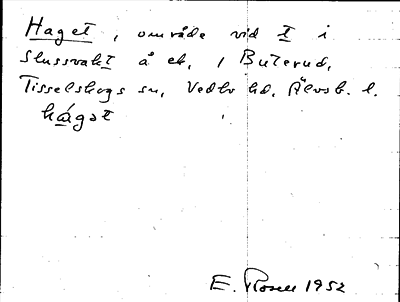 Haget, område vid t i
Slussvakt å ek. i Buterud,
Tisselskogs sn, Vedbo hd, Älvsb. l.
hágət
E. Rosell 1952